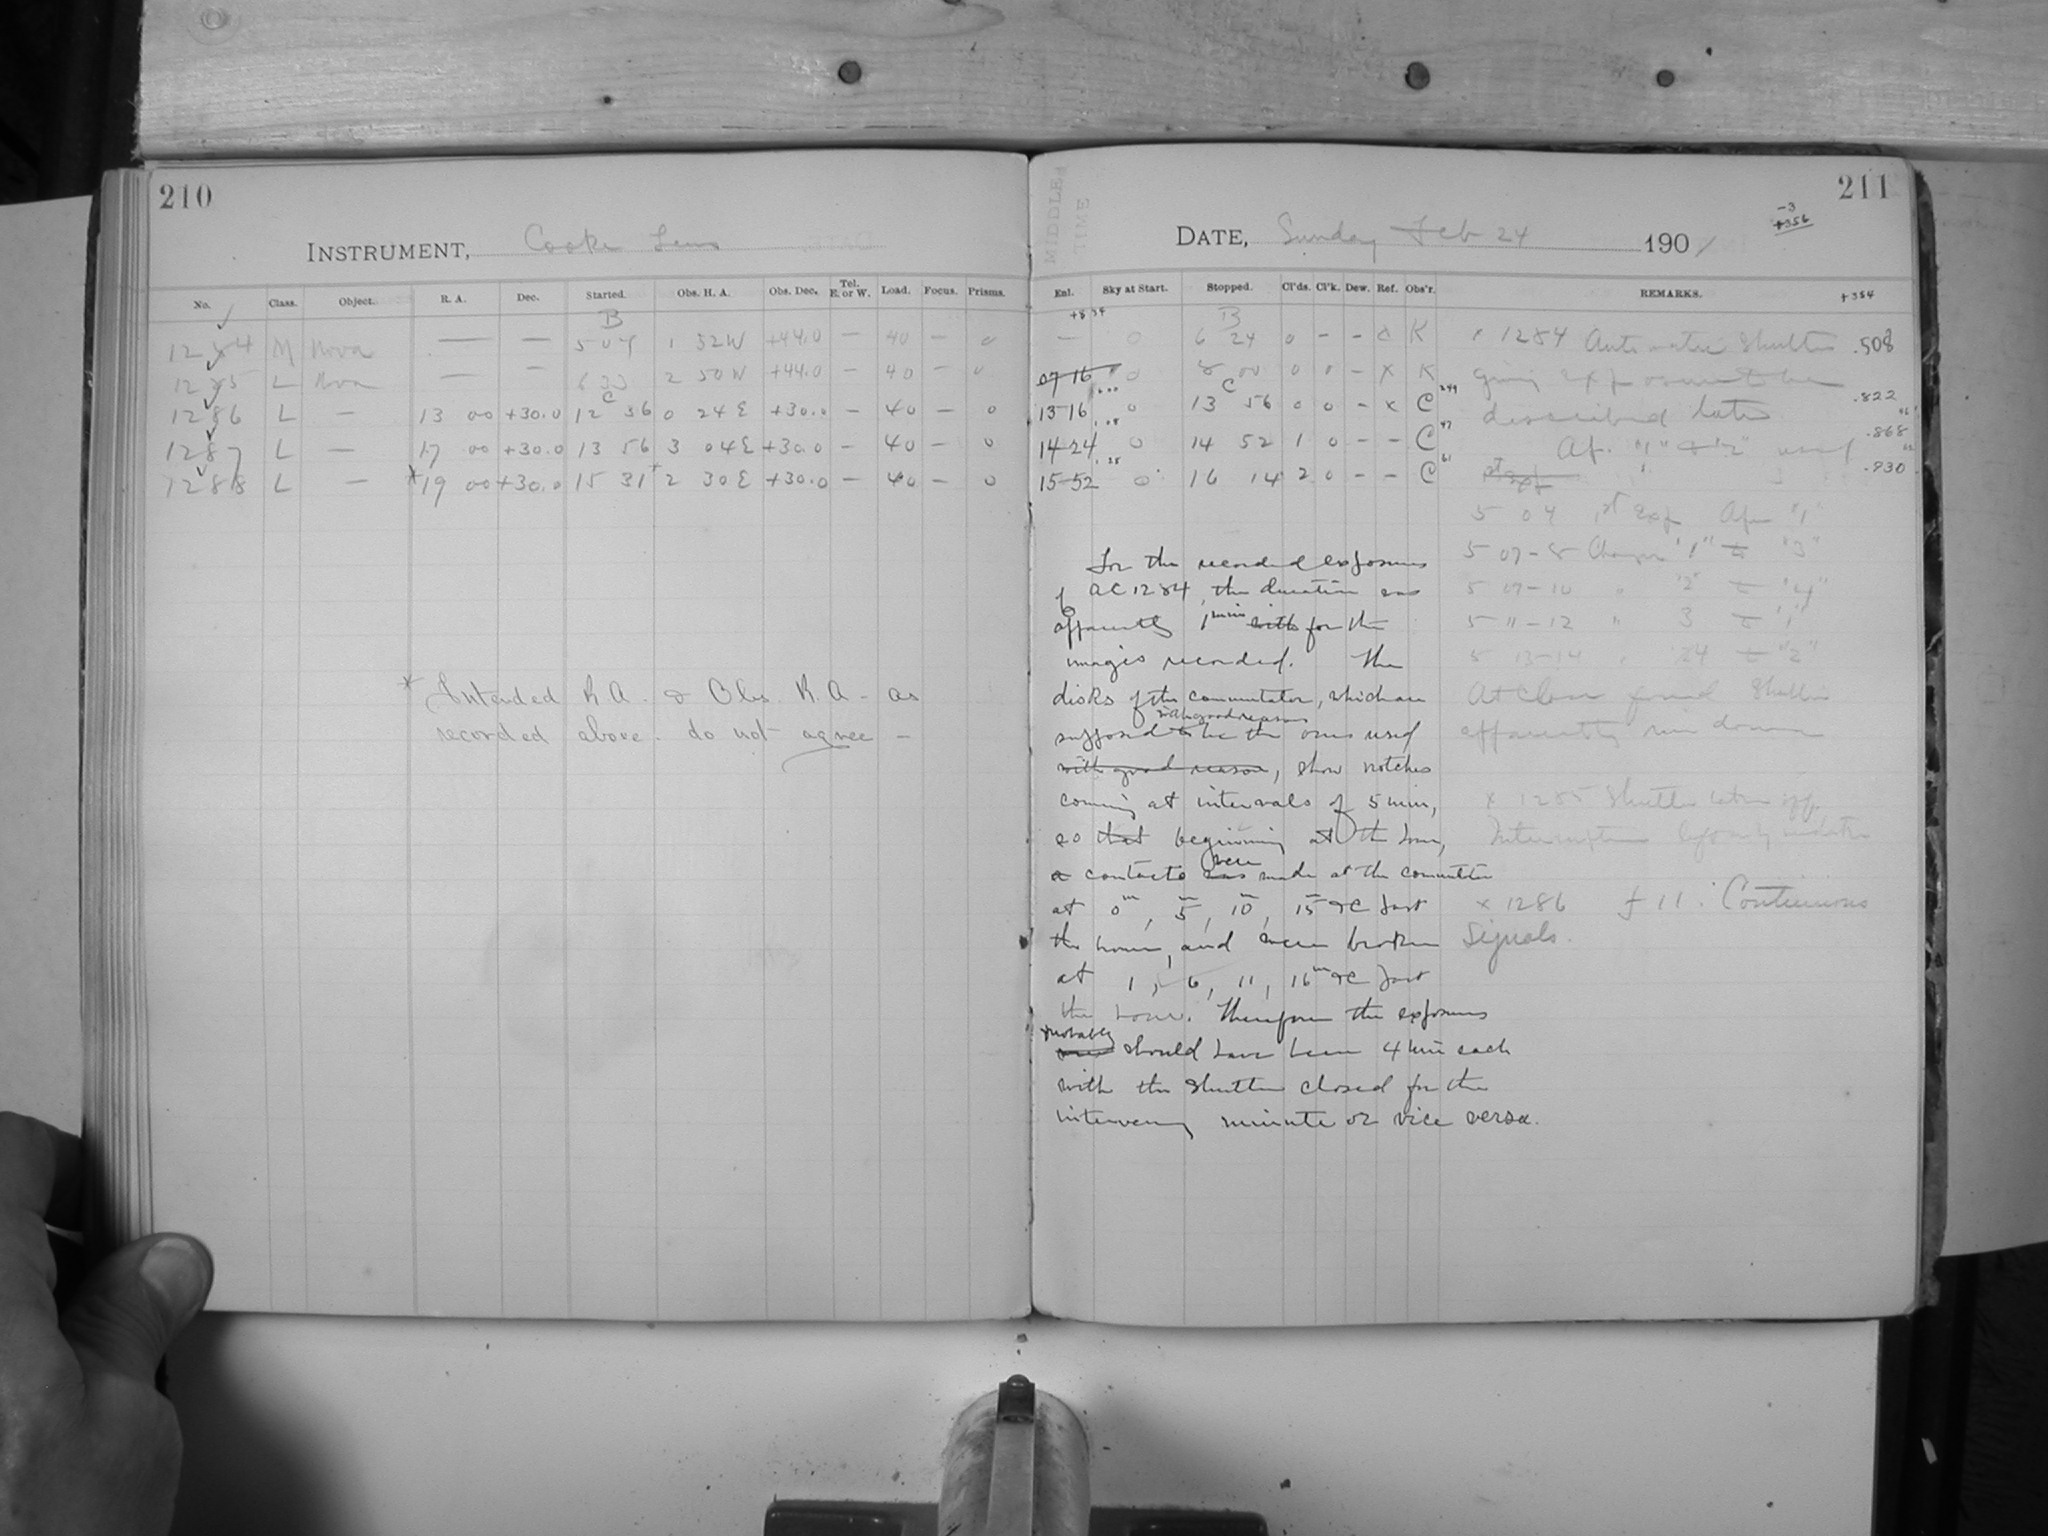 210
INSTRUMENT, Cooke Lens
No. Class. Object. R. A. Dec. Started. Obs. H. A. Obs. Dec. Tel. E. or W. Load. Focus. Prisms.
B
1284 M Nova — — 5 04 1 32W +44.0 — 40 — 0
1285 L Nova — — 2 50W +44.0 — 40 — 0
C
1286 L — 13 00 +30.0 12 36 0 24E +30.0 — 40 — 0
1287 L — 17 00 +30.0 13 56 3 04E +30.0 — 40 — 0
1288 L — *19 00 +30.0 15 31* 2 30E +30.0 — 40 — 0
* Intended R.A. & Obs. R.A. as
recorded above do not agree —
MIDDLE
TIME
211
-3
+356
DATE, Sunday Feb 24 1901
Enl. Sky at Start. Stopped. Cl'ds. Cl'k. Dew. Ref. Obs'r. REMARKS. +354
B
— 0 6 24 0 - - 0 K × 1284 Automatic Shutter .508
07-16 0 8 00 0 0 - × K giving exposures to be
C
13-16 0 13 56 0 0 - × C described later .822
14-24 0 14 52 1 0 - - C Ap. "1" & "2" used .868
15-52 0 16 14 2 0 - - C .930
5 04 1st Exp. Ap. "1"
5 07-8 Change "1" to "3"
5 09-10 " "2" to "4"
5 11-12 " 3 to "1"
5 13-14 " 4 to "2"
At close found Shutter
apparently run down
× 1285 Shutter taken off.
× 1286 f 11: Continuous
Signals.
For the recorded exposures
of AC 1284, the duration was
apparently 1 min with for the
images recorded. The
disks of the commutator, which are
with good reason
supposed to be the ones used
with good reason, show notches
coming at intervals of 5 min,
so that beginning at the hour,
were
a contacts was made at the commutator
at 0m, 5m, 10m, 15m &c past
the hour, and were broken
at 1, 6, 11, 16m &c past
the hour. Therefore the exposures
probably
should have been 4 min each
with the shutter closed for the
intervening minute or vice versa.